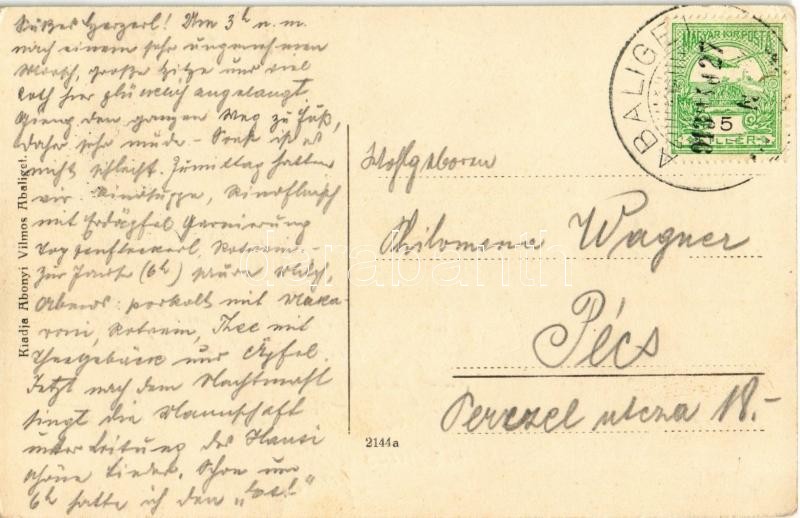 Süßes Herzerl! Um 3h n. m.
nach einem sehr ungenehmen
Marsch, große Hitze und viel
Koth hier glücklich angelangt.
Gieng den ganzen Weg zu Fuß,
daher sehr müde - Sonst ist es
nicht schlecht. Zu Mittag hatten
wir Rindsuppe, Rindfleisch
mit Erdäpfel Garnierung
Topfenfleckerl, Rotwein -
Zur Jause (6h) saure Milch,
Abends: porkolt mit Maka-
roni, Rotwein, Thee mit
Theegebäck und Äpfel.
Jetzt nach dem Nachtmahl
singt die Mannschaft
unter Leitung des Hansi
schöne Lieder. Schon um
6h hatte ich den
Kiadja Abonyi Vilmos Abaliget.
2144a
ABALIGET
913 27
MAGYAR KIR. POSTA
5
FILLÉR
Wohlgeboren
Philomena Wagner
Pécs
Perczel utcza 18.-
darabanth